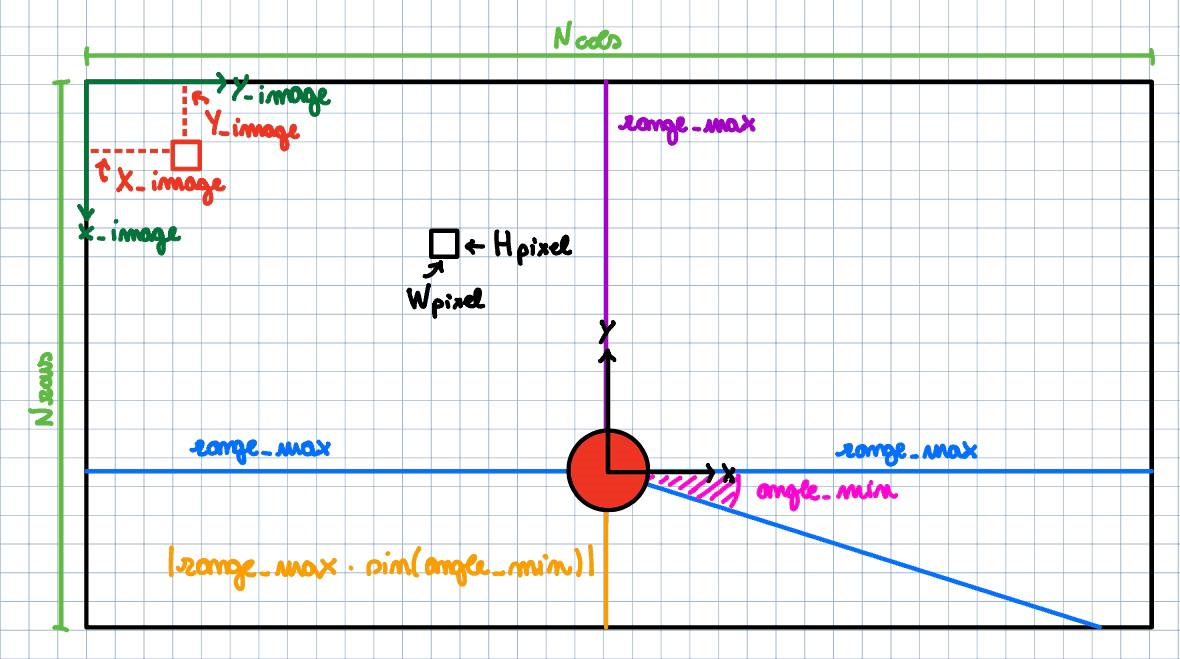 Ncols
Y_image
Y_image
X_image
X_image
range_max
← Hpixel
Wpixel
Nrows
Y
range_max
range_max
X
angle_min
|range_max · sin(angle_min)|